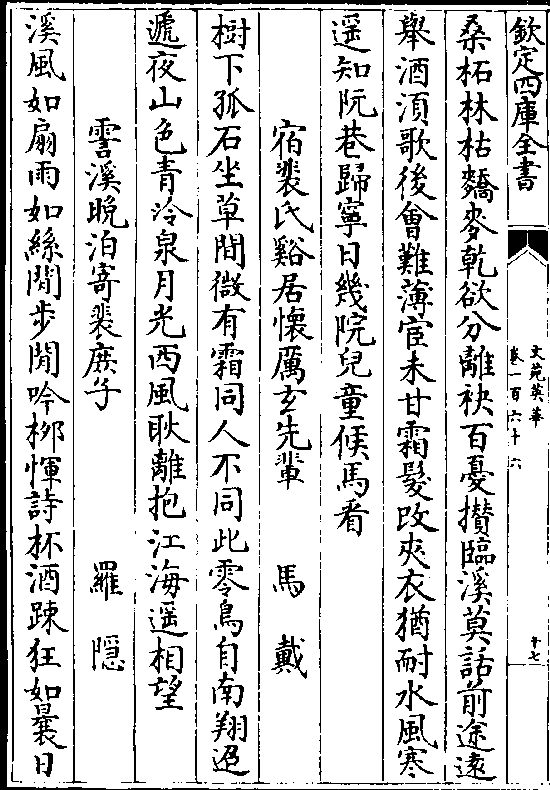 欽定四庫全書
文苑英華
卷一百六十六
十七
桑柘林枯蕎麥乾欲分離袂百憂攅臨溪莫話前途逺
舉酒湏歌後會難薄宦未甘霜髮改夾衣猶耐水風寒
遥知阮巷歸寧日幾院兒童候馬看
宿裴氏谿居懷厲玄先輩　馬戴
樹下孤石坐草間微有霜同人不同此零鳥自南翔迢
遞夜山色青泠泉月光西風耿離抱江海遥相望
霅溪晩泊寄裴庶子　羅隱
溪風如扇雨如絲閒步閒吟栁惲詩杯酒踈狂如曩日